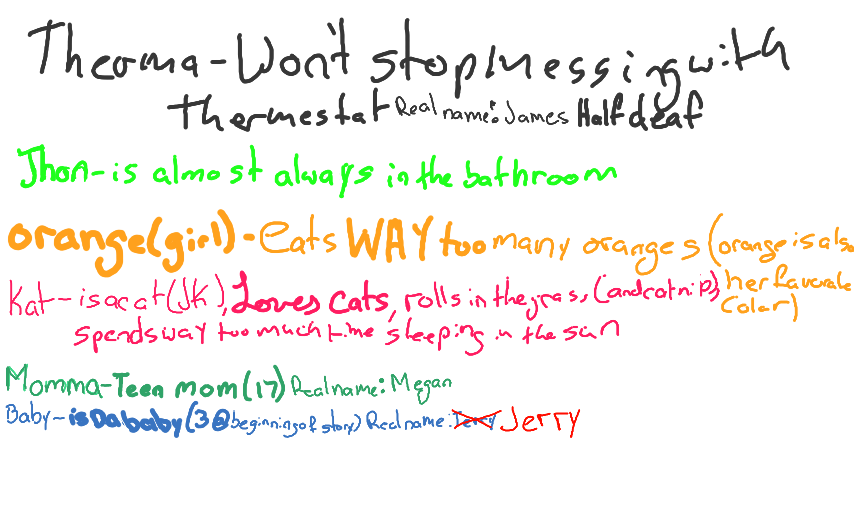 Therma-Won't stop messing with
thermestat Real name: James Half deaf
Jhon-is almost always in the bathroom
orange(girl)-Eats WAY too many oranges (orange is also
her faverate
Color)
Kat-is a cat (JK), Loves cats, rolls in the gras, (and catnip),
spends way too much time sleeping in the sun
Momma-Teen mom (17) Real name: Megan
Baby-is Da baby (3 @ beginning of story) Real name: Jerry Jerry